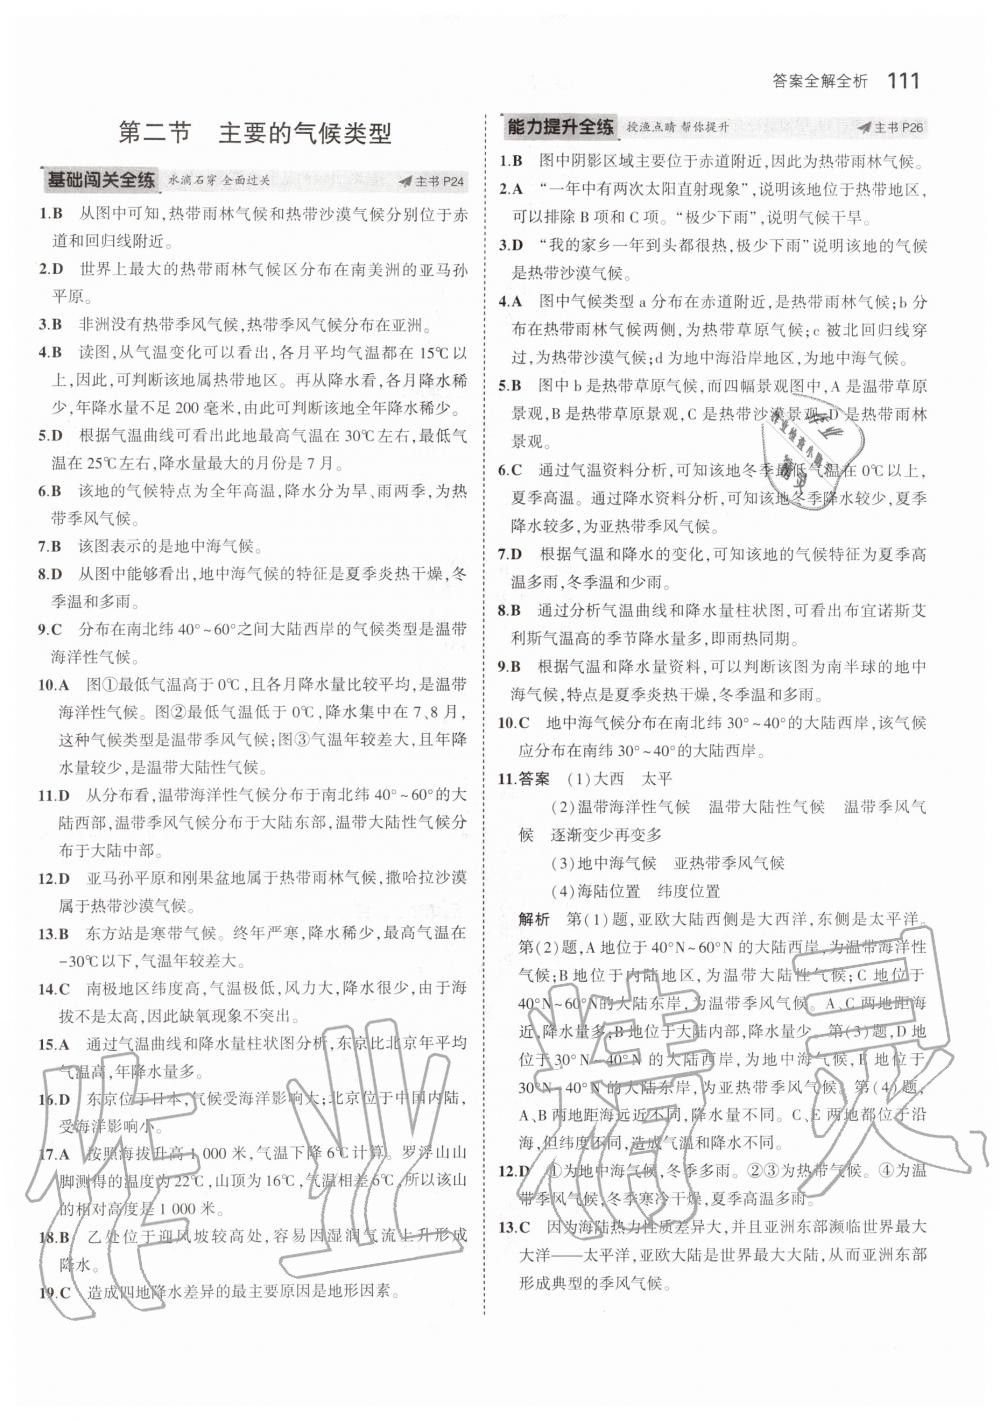 答案全解全析 111
第二节 主要的气候类型
基础闯关全练 水滴石穿 全面过关 主书 P24
1.B 从图中可知,热带雨林气候和热带沙漠气候分别位于赤
道和回归线附近。
2.D 世界上最大的热带雨林气候区分布在南美洲的亚马孙
平原。
3.B 非洲没有热带季风气候,热带季风气候分布在亚洲。
4.B 读图,从气温变化可以看出,各月平均气温都在 15℃以
上,因此,可判断该地属热带地区。再从降水看,各月降水稀
少,年降水量不足 200 毫米,由此可判断该地全年降水稀少。
5.D 根据气温曲线可看出此地最高气温在 30℃左右,最低气
温在 25℃左右,降水量最大的月份是 7 月。
6.B 该地的气候特点为全年高温,降水分为旱、雨两季,为热
带季风气候。
7.B 该图表示的是地中海气候。
8.D 从图中能够看出,地中海气候的特征是夏季炎热干燥,冬
季温和多雨。
9.C 分布在南北纬 40°~60°之间大陆西岸的气候类型是温带
海洋性气候。
10.A 图①最低气温高于 0℃,且各月降水量比较平均,是温带
海洋性气候。图②最低气温低于 0℃,降水集中在 7、8 月,
这种气候类型是温带季风气候;图③气温年较差大,且年降
水量较少,是温带大陆性气候。
11.D 从分布看,温带海洋性气候分布于南北纬 40°~60°的大
陆西部,温带季风气候分布于大陆东部,温带大陆性气候分
布于大陆中部。
12.D 亚马孙平原和刚果盆地属于热带雨林气候,撒哈拉沙漠
属于热带沙漠气候。
13.B 东方站是寒带气候。终年严寒,降水稀少,最高气温在
-30℃以下,气温年较差大。
14.C 南极地区纬度高,气温极低,风力大,降水少,但由于海
拔不是太高,因此缺氧现象不突出。
15.A 通过气温曲线和降水量柱状图分析,东京比北京年平均
气温高,年降水量多。
16.D 东京位于日本,气候受海洋影响大;北京位于中国内陆,
受海洋影响小。
17.A 按照海拔升高 1 000 米,气温下降 6℃计算。罗浮山山
脚测得的温度为 22℃,山顶为 16℃,气温相差 6℃,所以该山
的相对高度是 1 000 米。
18.B 乙处位于迎风坡较高处,容易因湿润气流上升形成
降水。
19.C 造成四地降水差异的最主要原因是地形因素。
能力提升全练 授渔点睛 帮你提升 主书 P26
1.B 图中阴影区域主要位于赤道附近,因此为热带雨林气候。
2.A “一年中有两次太阳直射现象”,说明该地位于热带地区,
可以排除 B 项和 C 项。“极少下雨”,说明气候干旱。
3.D “我的家乡一年到头都很热,极少下雨”说明该地的气候
是热带沙漠气候。
4.A 图中气候类型 a 分布在赤道附近,是热带雨林气候;b 分
布在热带雨林气候两侧,为热带草原气候;c 被北回归线穿
过,为热带沙漠气候;d 为地中海沿岸地区,为地中海气候。
5.B 图中 b 是热带草原气候,而四幅景观图中,A 是温带草原
景观,B 是热带草原景观,C 是热带沙漠景观,D 是热带雨林
景观。
6.C 通过气温资料分析,可知该地冬季最低气温在 0℃以上,
夏季高温。通过降水资料分析,可知该地冬季降水较少,夏季
降水较多,为亚热带季风气候。
7.D 根据气温和降水的变化,可知该地的气候特征为夏季高
温多雨,冬季温和少雨。
8.B 通过分析气温曲线和降水量柱状图,可看出布宜诺斯艾
利斯气温高的季节降水量多,即雨热同期。
9.B 根据气温和降水量资料,可以判断该图为南半球的地中
海气候,特点是夏季炎热干燥,冬季温和多雨。
10.C 地中海气候分布在南北纬 30°~40°的大陆西岸,该气候
应分布在南纬 30°~40°的大陆西岸。
11.答案 (1)大西 太平
(2)温带海洋性气候 温带大陆性气候 温带季风气
候 逐渐变少再变多
(3)地中海气候 亚热带季风气候
(4)海陆位置 纬度位置
解析 第(1)题,亚欧大陆西侧是大西洋,东侧是太平洋。
第(2)题,A 地位于 40°N~60°N 的大陆西岸,为温带海洋性
气候;B 地位于内陆地区,为温带大陆性气候;C 地位于
40°N~60°N 的大陆东岸,为温带季风气候。A、C 两地距海
近,降水量多;B 地位于大陆内部,降水量少。第(3)题,D 地
位于 30°N~40°N 的大陆西岸,为地中海气候,E 地位于
30°N~40°N 的大陆东岸,为亚热带季风气候。第(4)题,
A、B 两地距海远近不同,降水量不同。C、E 两地都位于沿
海,但纬度不同,造成气温和降水不同。
12.D ①为地中海气候,冬季多雨。②③为热带气候。④为温
带季风气候,冬季寒冷干燥,夏季高温多雨。
13.C 因为海陆热力性质差异大,并且亚洲东部濒临世界最大
大洋——太平洋,亚欧大陆是世界最大大陆,从而亚洲东部
形成典型的季风气候。
作业精灵